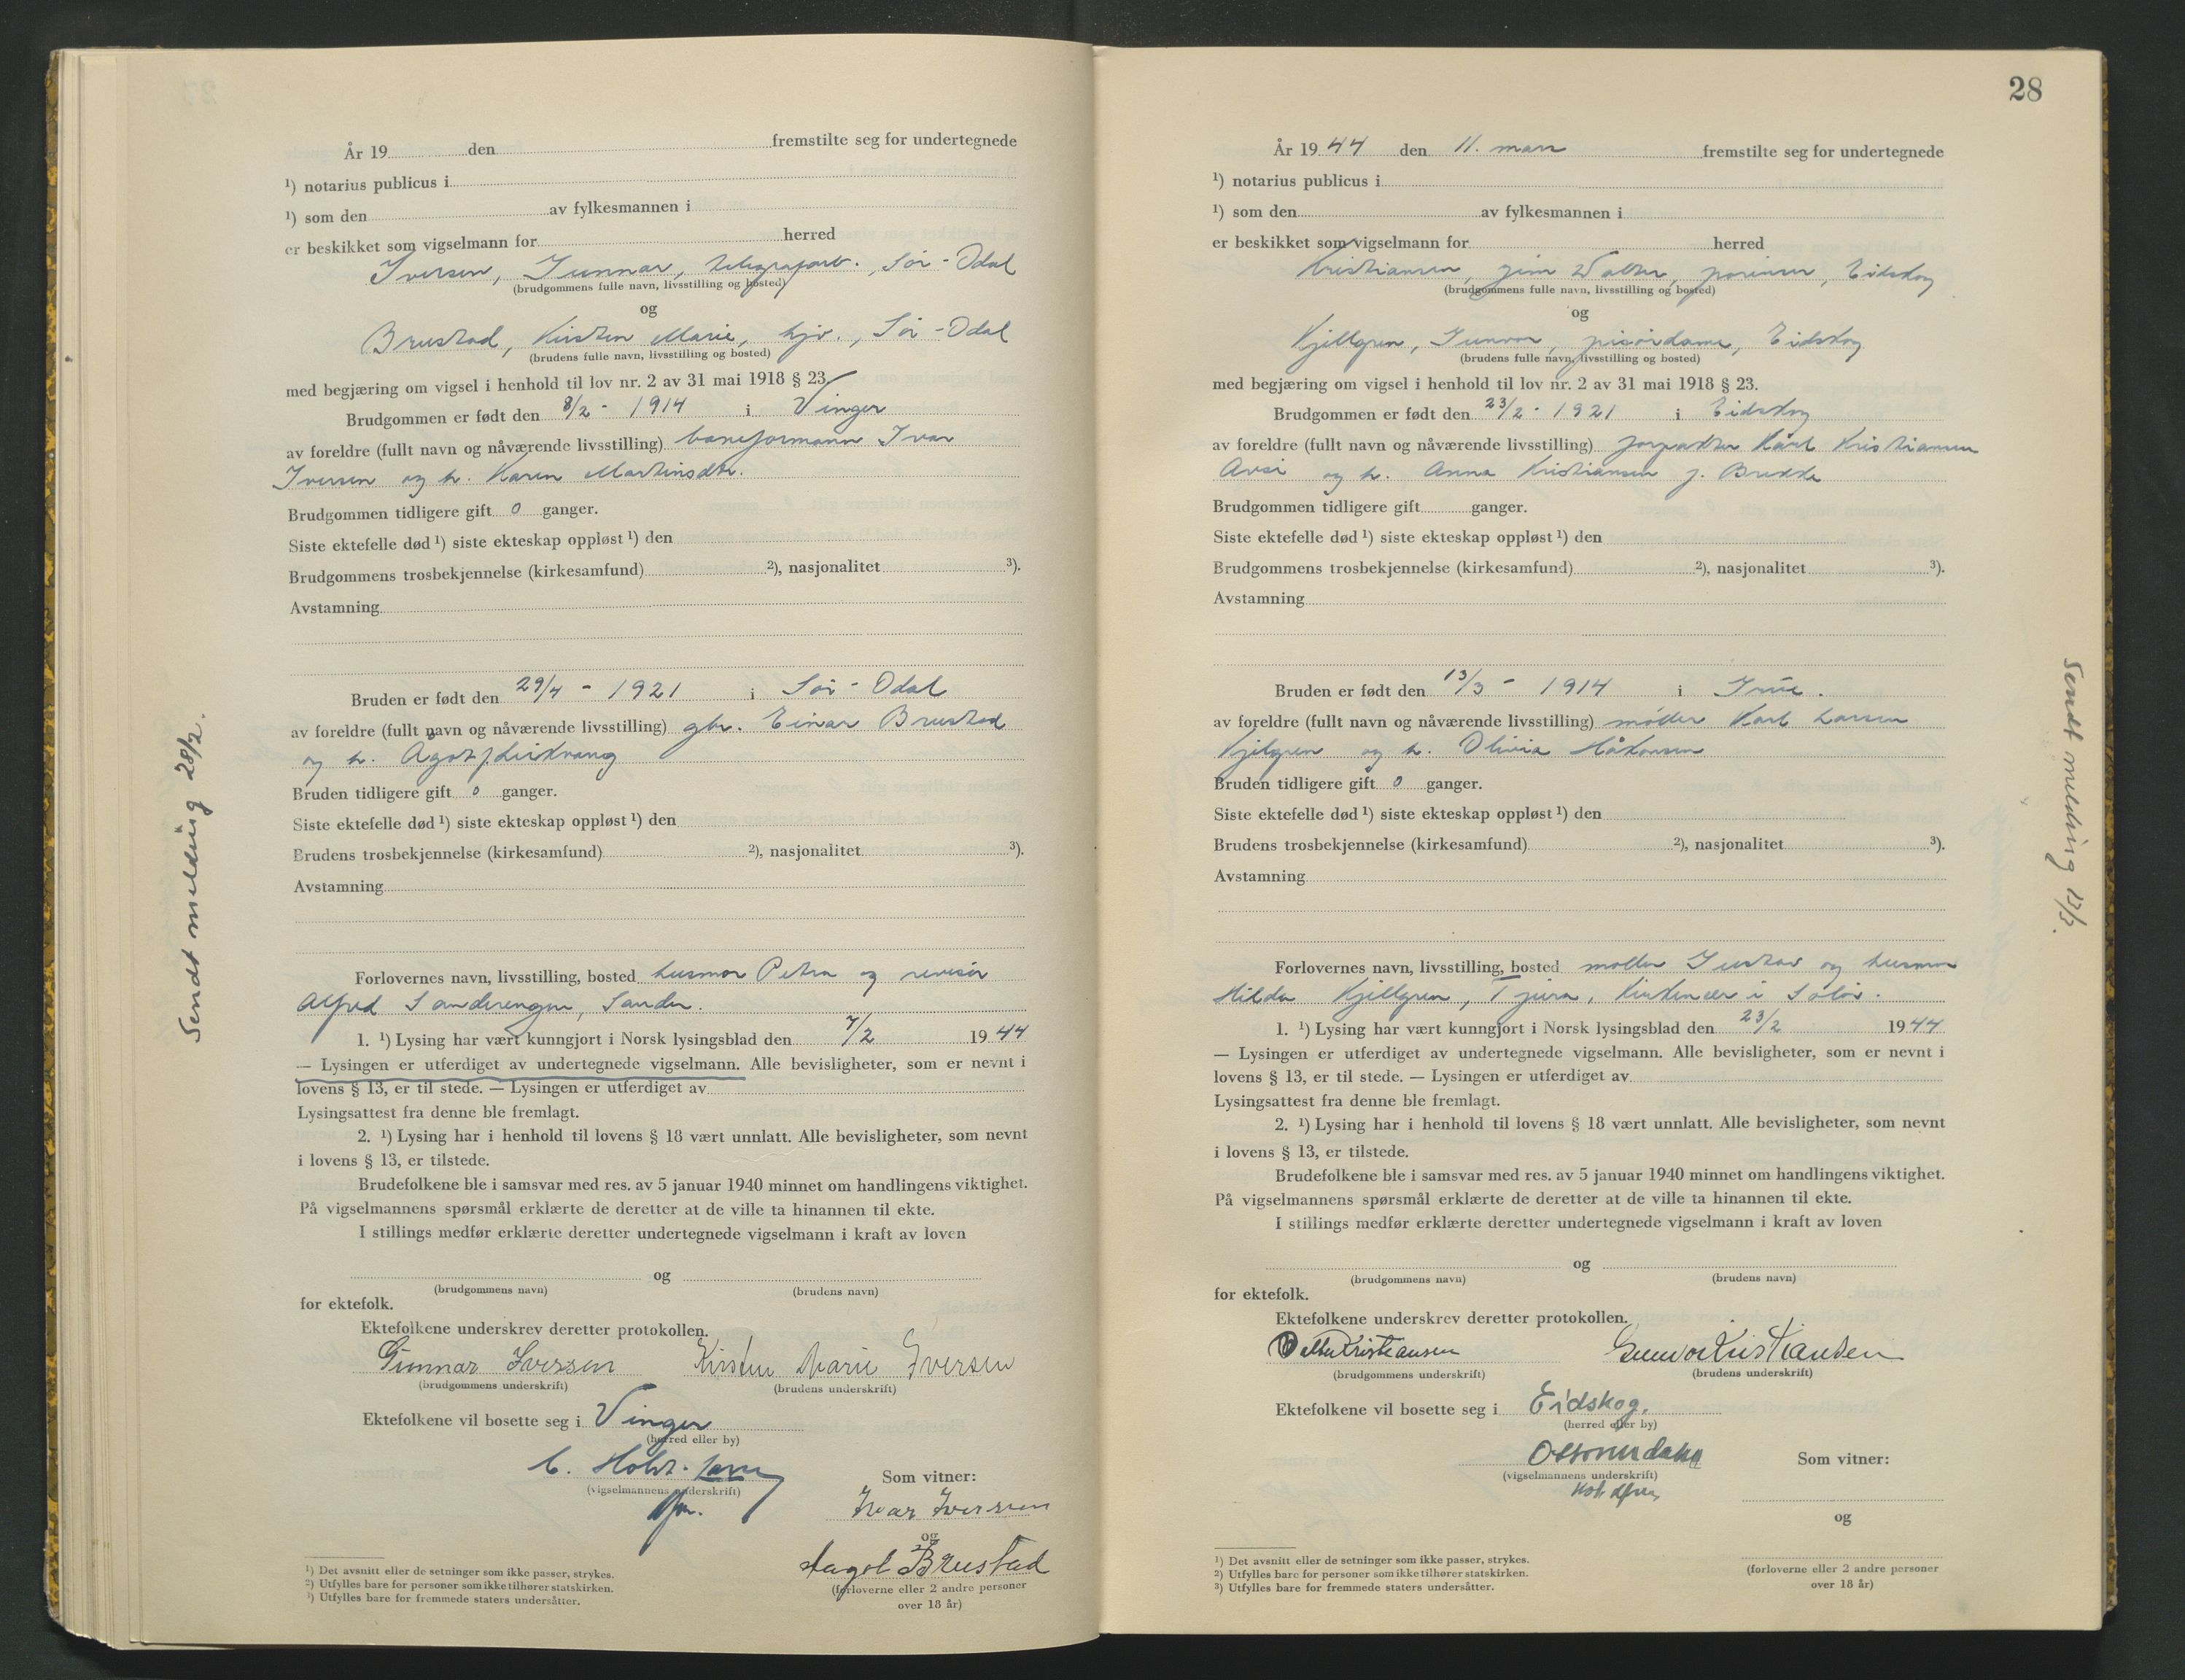 År 19 den fremstilte seg for undertegnede
¹) notarius publicus i
¹) som den av fylkesmannen i
er beskikket som vigselmann for herred
Iversen, Gunnar, telegrafarb., Sør-Odal
(brudgommens fulle navn, livsstilling og bosted)
og
Brustad, Kirsten Marie, hjv., Sør-Odal
(brudens fulle navn, livsstilling og bosted)
med begjæring om vigsel i henhold til lov nr. 2 av 31 mai 1918 § 23.
Brudgommen er født den 8/2 - 1914 i Vinger
av foreldre (fullt navn og nåværende livsstilling) baneformann Ivar
Iversen og h. Karen Martinsdtr.
Brudgommen tidligere gift 0 ganger.
Siste ektefelle død ¹) siste ekteskap oppløst ¹) den
Brudgommens trosbekjennelse (kirkesamfund) ²), nasjonalitet ³).
Avstamning
Bruden er født den 29/4 - 1921 i Sør-Odal
av foreldre (fullt navn og nåværende livsstilling) gbr. Einar Brustad
og h. Agot f.
Bruden tidligere gift 0 ganger.
Siste ektefelle død ¹) siste ekteskap oppløst ¹) den
Brudens trosbekjennelse (kirkesamfund) ²), nasjonalitet ³).
Avstamning
Forlovernes navn, livsstilling, bosted husmor Petra og revisor
Alfred Sanderengen, Sander.
1. ¹) Lysing har vært kunngjort i Norsk lysingsblad den 7/2 1944
— Lysingen er utferdiget av undertegnede vigselmann. Alle bevisligheter, som er nevnt i
lovens § 13, er til stede. — Lysingen er utferdiget av
Lysingsattest fra denne ble fremlagt.
2. ¹) Lysing har i henhold til lovens § 18 vært unnlatt. Alle bevisligheter, som nevnt
i lovens § 13, er tilstede.
Brudefolkene ble i samsvar med res. av 5 januar 1940 minnet om handlingens viktighet.
På vigselmannens spørsmål erklærte de deretter at de ville ta hinannen til ekte.
I stillings medfør erklærte deretter undertegnede vigselmann i kraft av loven
og
(brudgommens navn) (brudens navn)
for ektefolk.
Ektefolkene underskrev deretter protokollen.
Gunnar Iversen Kirsten Marie Iversen
(brudgommens underskrift) (brudens underskrift)
Ektefolkene vil bosette seg i Vinger
(herred eller by)
C. Holst-
(vigselmannens underskrift)
Som vitner:
Ivar Iversen
og
Aagot Brustad
(forloverne eller 2 andre personer
over 18 år)
¹) Det avsnitt eller de setninger som ikke passer, strykes.
²) Utfylles bare for personer som ikke tilhører statskirken.
³) Utfylles bare for fremmede staters undersåtter.
Sendt melding 28/2.
28
År 1944 den 11. mars fremstilte seg for undertegnede
¹) notarius publicus i
¹) som den av fylkesmannen i
er beskikket som vigselmann for herred
Kristiansen, Walter, Eidskog
(brudgommens fulle navn, livsstilling og bosted)
og
Kjellgren, Gunvor, frisørdame, Eidskog
(brudens fulle navn, livsstilling og bosted)
med begjæring om vigsel i henhold til lov nr. 2 av 31 mai 1918 § 23.
Brudgommen er født den 23/2 - 1921 i Eidskog
av foreldre (fullt navn og nåværende livsstilling) forpakter Karl Kristiansen
og h. Anna Kristiansen f. Brekke
Brudgommen tidligere gift ganger.
Siste ektefelle død ¹) siste ekteskap oppløst ¹) den
Brudgommens trosbekjennelse (kirkesamfund) ²), nasjonalitet ³).
Avstamning
Bruden er født den 13/3 - 1914 i Grue.
av foreldre (fullt navn og nåværende livsstilling) møller Karl Larsen
Kjelgren og h. Olivia Håkonsen
Bruden tidligere gift 0 ganger.
Siste ektefelle død ¹) siste ekteskap oppløst ¹) den
Brudens trosbekjennelse (kirkesamfund) ²), nasjonalitet ³).
Avstamning
Forlovernes navn, livsstilling, bosted møller Gustav og husmor
Hilda Kjellgren, Tjura, Kirkenær i Solør.
1. ¹) Lysing har vært kunngjort i Norsk lysingsblad den 23/2 1944
— Lysingen er utferdiget av undertegnede vigselmann. Alle bevisligheter, som er nevnt i
lovens § 13, er til stede. — Lysingen er utferdiget av
Lysingsattest fra denne ble fremlagt.
2. ¹) Lysing har i henhold til lovens § 18 vært unnlatt. Alle bevisligheter, som nevnt
i lovens § 13, er tilstede.
Brudefolkene ble i samsvar med res. av 5 januar 1940 minnet om handlingens viktighet.
På vigselmannens spørsmål erklærte de deretter at de ville ta hinannen til ekte.
I stillings medfør erklærte deretter undertegnede vigselmann i kraft av loven
og
(brudgommens navn) (brudens navn)
for ektefolk.
Ektefolkene underskrev deretter protokollen.
Walter Kristiansen Gunvor Kristiansen
(brudgommens underskrift) (brudens underskrift)
Ektefolkene vil bosette seg i Eidskog.
(herred eller by)
(vigselmannens underskrift)
Som vitner:
og
(forloverne eller 2 andre personer
over 18 år)
¹) Det avsnitt eller de setninger som ikke passer, strykes.
²) Utfylles bare for personer som ikke tilhører statskirken.
³) Utfylles bare for fremmede staters undersåtter.
Sendt melding 13/3.